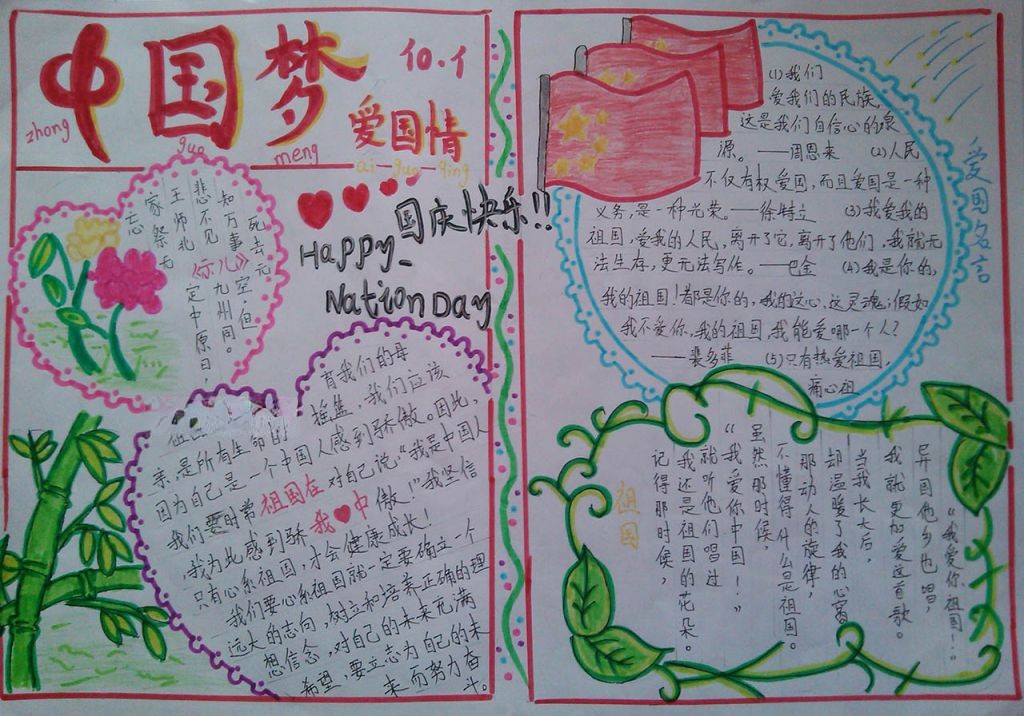 中国梦
zhong guo meng
10.1
爱国情
ai-guo-qing
国庆快乐!!
Happy
Nation Day
《示儿》
死去元
知万事
空，但
悲不见
九州同。
王师北
定中原日，
家祭无
忘
有我们的母
亲，是所有生命的摇篮，我们应该
因为自己是一个中国人感到骄傲。因此，
我们要时常对自己说“我是中国人
我为此感到骄傲！”我坚信
只有心系祖国，才会健康成长！
我们要心系祖国就一定要确立一个
远大的志向，树立和培养正确的理
想信念，对自己的未来充满
希望，要立志为自己的未
来而努力奋
斗。
祖国在
我❤中
爱国名言
(1)我们
爱我们的民族，
这是我们自信心的泉
源。——周恩来 (2)人民
不仅有权爱国，而且爱国是一种
义务，是一种光荣。——徐特立 (3)我爱我的
祖国，爱我的人民，离开了它，离开了他们，我就无
法生存，更无法写作。——巴金 (4)我是你的，
我的祖国！都是你的，我的这心、这灵魂；假如
我不爱你，我的祖国，我能爱哪一个人？
——裴多菲 (5)只有热爱祖国，
痛心祖
祖国
记得那时候，
我还是祖国的花朵。
就听他们唱过
“我爱你中国！”
虽然那时候，
不懂得什么是祖国。
那动人的旋律，
却温暖了我的心窝
当我长大后，
我就更加爱这首歌。
异国他乡也唱，
“我爱你，祖国！”